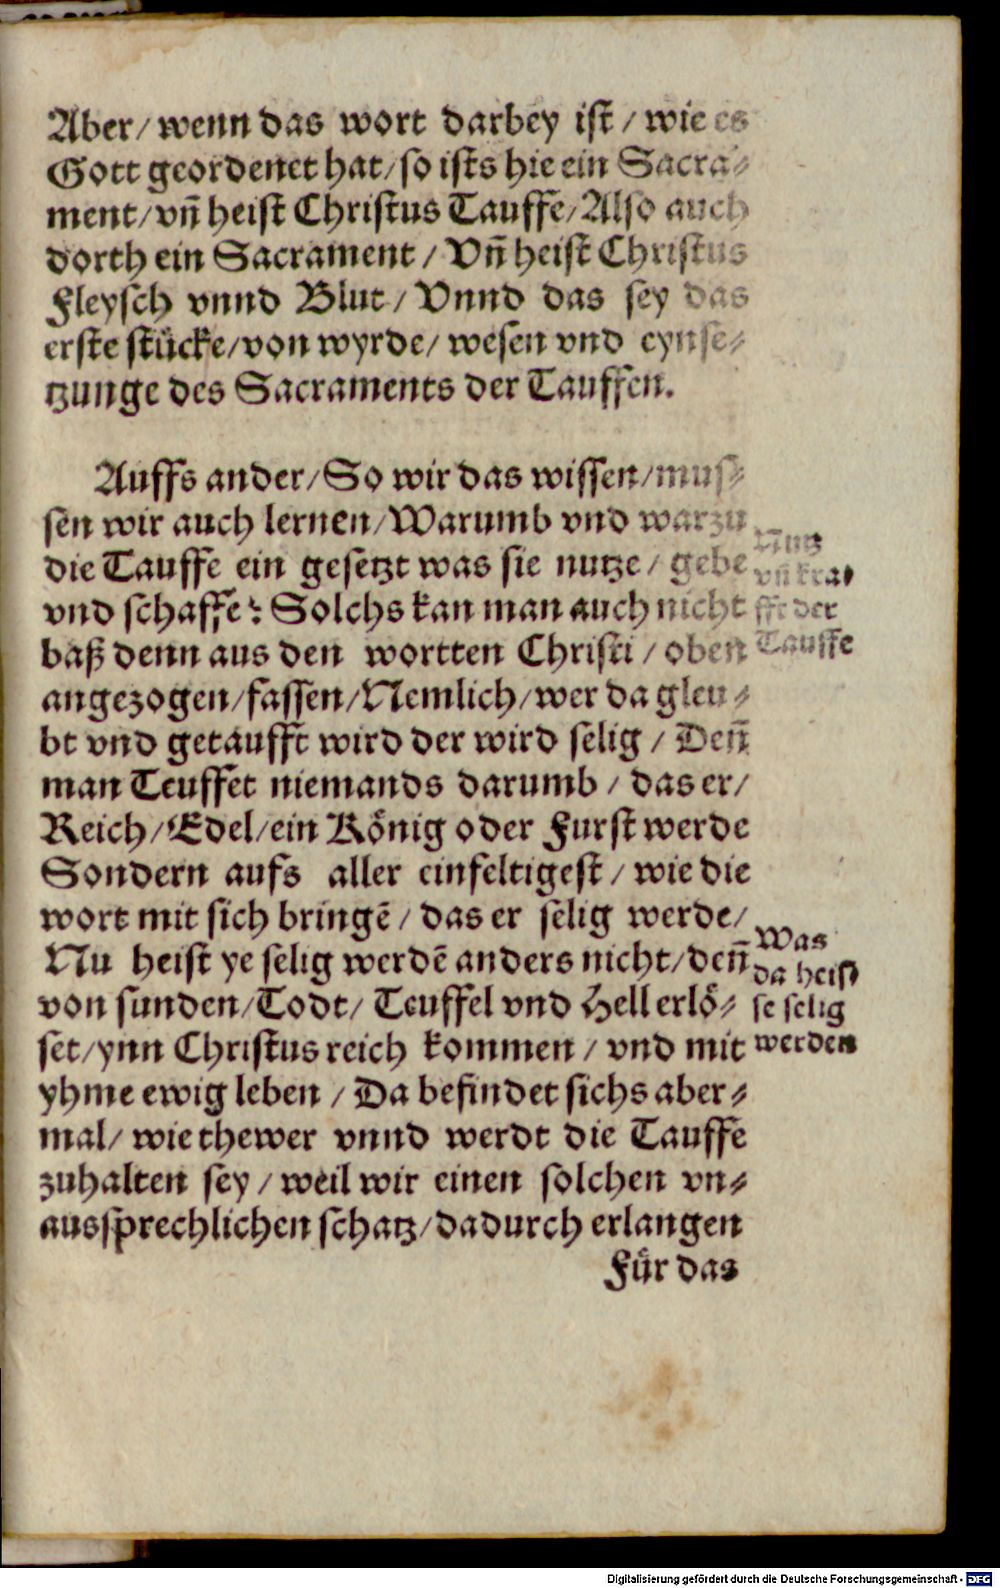 Aber/ wenn das wort darbey ist / wie es
Gott geordenet hat/ so ists hie ein Sacra⸗
ment/ vñ heist Christus Tauffe/ Also auch
dorth ein Sacrament / Vñ heist Christus
Fleysch vnnd Blut/ Vnnd das sey das
erste stücke/ von wyrde/ wesen vnd eynse⸗
tzunge des Sacraments der Tauffen.
Auffs ander/ So wir das wissen/ mus⸗
sen wir auch lernen/ Warumb vnd warzu
die Tauffe ein gesetzt was sie nutze / gebe
vnd schaffe: Solchs kan man auch nicht
baß denn aus den wortten Christi / oben
angezogen/ fassen/ Nemlich/ wer da gleu⸗
bt vnd getaufft wird der wird selig / Deñ
man Teuffet niemands darumb / das er/
Reich/ Edel/ ein König oder Furst werde
Sondern aufs aller einfeltigest / wie die
wort mit sich bringē / das er selig werde/
Nu heist ye selig werdē anders nicht/ deñ
von sunden/ Todt/ Teuffel vnd Hell erlö⸗
set/ ynn Christus reich kommen / vnd mit
yhme ewig leben / Da befindet sichs aber⸗
mal/ wie thewer vnnd werdt die Tauffe
zuhalten sey / weil wir einen solchen vn⸗
aussprechlichen schatz/ dadurch erlangen
Für das
Nutz
vñ kra⸗
fft der
Tauffe
Was
da heis⸗
se selig
werden
Digitalisierung gefördert durch die Deutsche Forschungsgemeinschaft - DFG